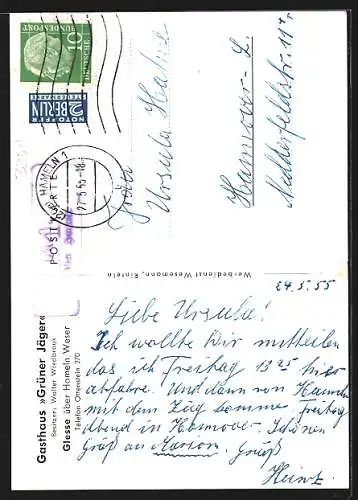 10
DEUTSCHE
BUNDESPOST
NOTOPFER
2 BERLIN
STEUERMARKE
HAMELN 1
Ursula Hahne
Hannover-L.
Werbedienst Wesemann, Rinteln
Gasthaus »Grüner Jäger«
Besitzer: Walter Wiedbrauk
Glesse über Hameln Weser
Telefon Ottenstein 370
24.5.55
Liebe Ursula!
Ich wollte Dir mitteilen
das ich Freitag 13 25 hier
abfahre. Und dann von Hameln
mit dem Zug komme Freitag
abend in Hannover. Schönen
Gruß an Marion. Gruß
Heinz